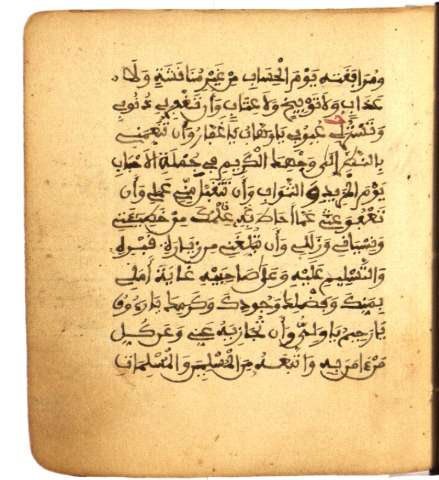 ومرافقته يوم الحساب من غير مناقشة ولا
عذاب ولا توبيخ ولا عتاب وأن تغفر لي ذنوبي
وتستر لي عيوبي يا وهاب يا غفار وأن تنعمني
بالنظر إلى وجهك الكريم في جملة الأحباب
يوم المزيد والثواب وأن تتقبل مني عملي وأن
تعفو عني عما أحاط به علمك من خطيئتي
ونسياني وزللي وأن تبلغني من زيارة قبره
والتسليم عليه وعلى صاحبيه غاية أملي
بمنك وفضلك وجودك وكرمك يا رءوف
يا رحيم يا ولي وأن تجازيه عني وعن كل
من ءامن به واتبعه من المسلمين والمسلمات